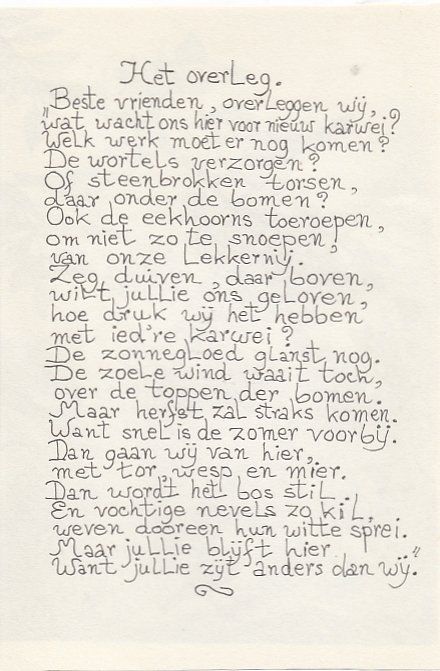 Het overleg.
"Beste vrienden, overleggen wij,
wat wacht ons hier voor nieuw karwei?
Welk werk moet er nog komen?
De wortels verzorgen?
Of steenbrokken torsen,
daar onder de bomen?
Ook de eekhoorns toeroepen,
om niet zo te snoepen,
van onze lekkernij.
Zeg, duiven, daar boven,
wilt jullie ons geloven,
hoe druk wij het hebben
met ied're karwei?
De zonnegloed glanst nog.
De zoele wind waait toch,
over de toppen der bomen.
Maar herfst zal straks komen.
Want snel is de zomer voorbij.
Dan gaan wij van hier,
met tor, wesp en mier.
Dan wordt het bos stil.
En vochtige nevels zo kil,
weven dooreen hun witte sprei.
Maar jullie blijft hier....
Want jullie zijt anders dan wij."